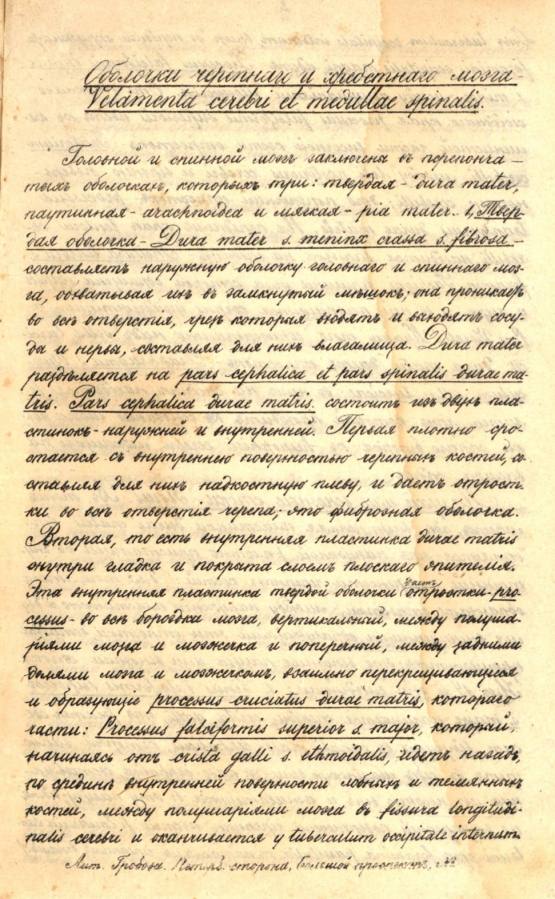 Оболочки черепнаго и хребетнаго мозга-
Velamenta cerebri et medullae spinalis.
Головной и спинной мозг заключены въ перепонча-
тыхъ оболочкахъ, которыхъ три: твердая - dura mater,
паутинная - arachnoidea и мягкая - pia mater. 1, Твер-
дая оболочка - Dura mater s. meninx crassa s. fibrosa -
составляетъ наружную оболочку головнаго и спиннаго моз-
га, обхватывая ихъ въ замкнутый мѣшокъ; она проникаетъ
во всѣ отверстія, чрез которая входятъ и выходятъ сосу-
ды и нервы, составляя для нихъ влагалища. Dura mater
раздѣляется на pars cephalica et pars spinalis durae ma-
tris. Pars cephalica durae matris состоитъ изъ двухъ пла-
стинокъ - наружней и внутренней. Первая плотно сро-
стается съ внутреннею поверхностью черепныхъ костей, со-
ставляя для нихъ надкостную плеву, и даетъ отрост-
ки во всѣ отверстія черепа; - это фиброзная оболочка.
Вторая, то есть внутренняя пластинка durae matris
внутри гладка и покрыта слоемъ плоскаго эпителія.
Эта внутренняя пластинка твердой оболочки даетъ отростки - pro-
cessus - во всѣ бороздки мозга, вертикальный, между полуша-
ріями мозга и мозжечка и поперечный, между задними
долями мозга и мозжечкомъ, взаимно перекрещивающіеся
и образующіе processus cruciatus durae matris, котораго
части: Processus falciformis superior s. major, который,
начинаясь отъ crista galli s. ethmoidalis, идетъ назадъ,
по срединѣ внутренней поверхности лобныхъ и темянныхъ
костей, между полушаріями мозга въ fissura longitudi-
nalis cerebri и оканчивается у tuberculum occipitale internum.
Лит. Гробова. Петерб. сторона, Большой проспектъ,